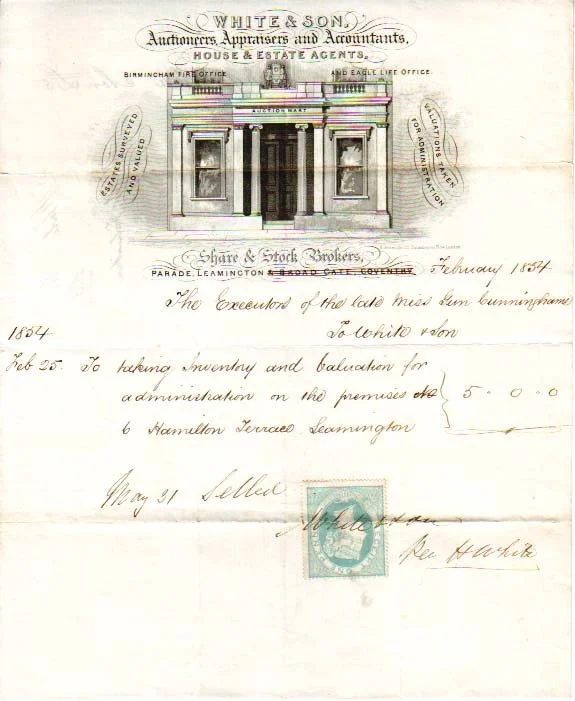 WHITE & SON,
Auctioneers, Appraisers and Accountants,
HOUSE & ESTATE AGENTS,
BIRMINGHAM FIRE OFFICE AND EAGLE LIFE OFFICE.
AUCTION MART
ESTATES SURVEYED AND VALUED
VALUATIONS TAKEN FOR ADMINISTRATION
Share & Stock Brokers,
PARADE, LEAMINGTON & BROAD GATE, COVENTRY February 1854
The Executors of the late Miss Gun Cunninghame
1854 To White & Son
Feb 25. To taking Inventory and Valuation for
administration on the premises No 5 . 0 . 0
6 Hamilton Terrace Leamington
May 31 Settled
White & Son
H White